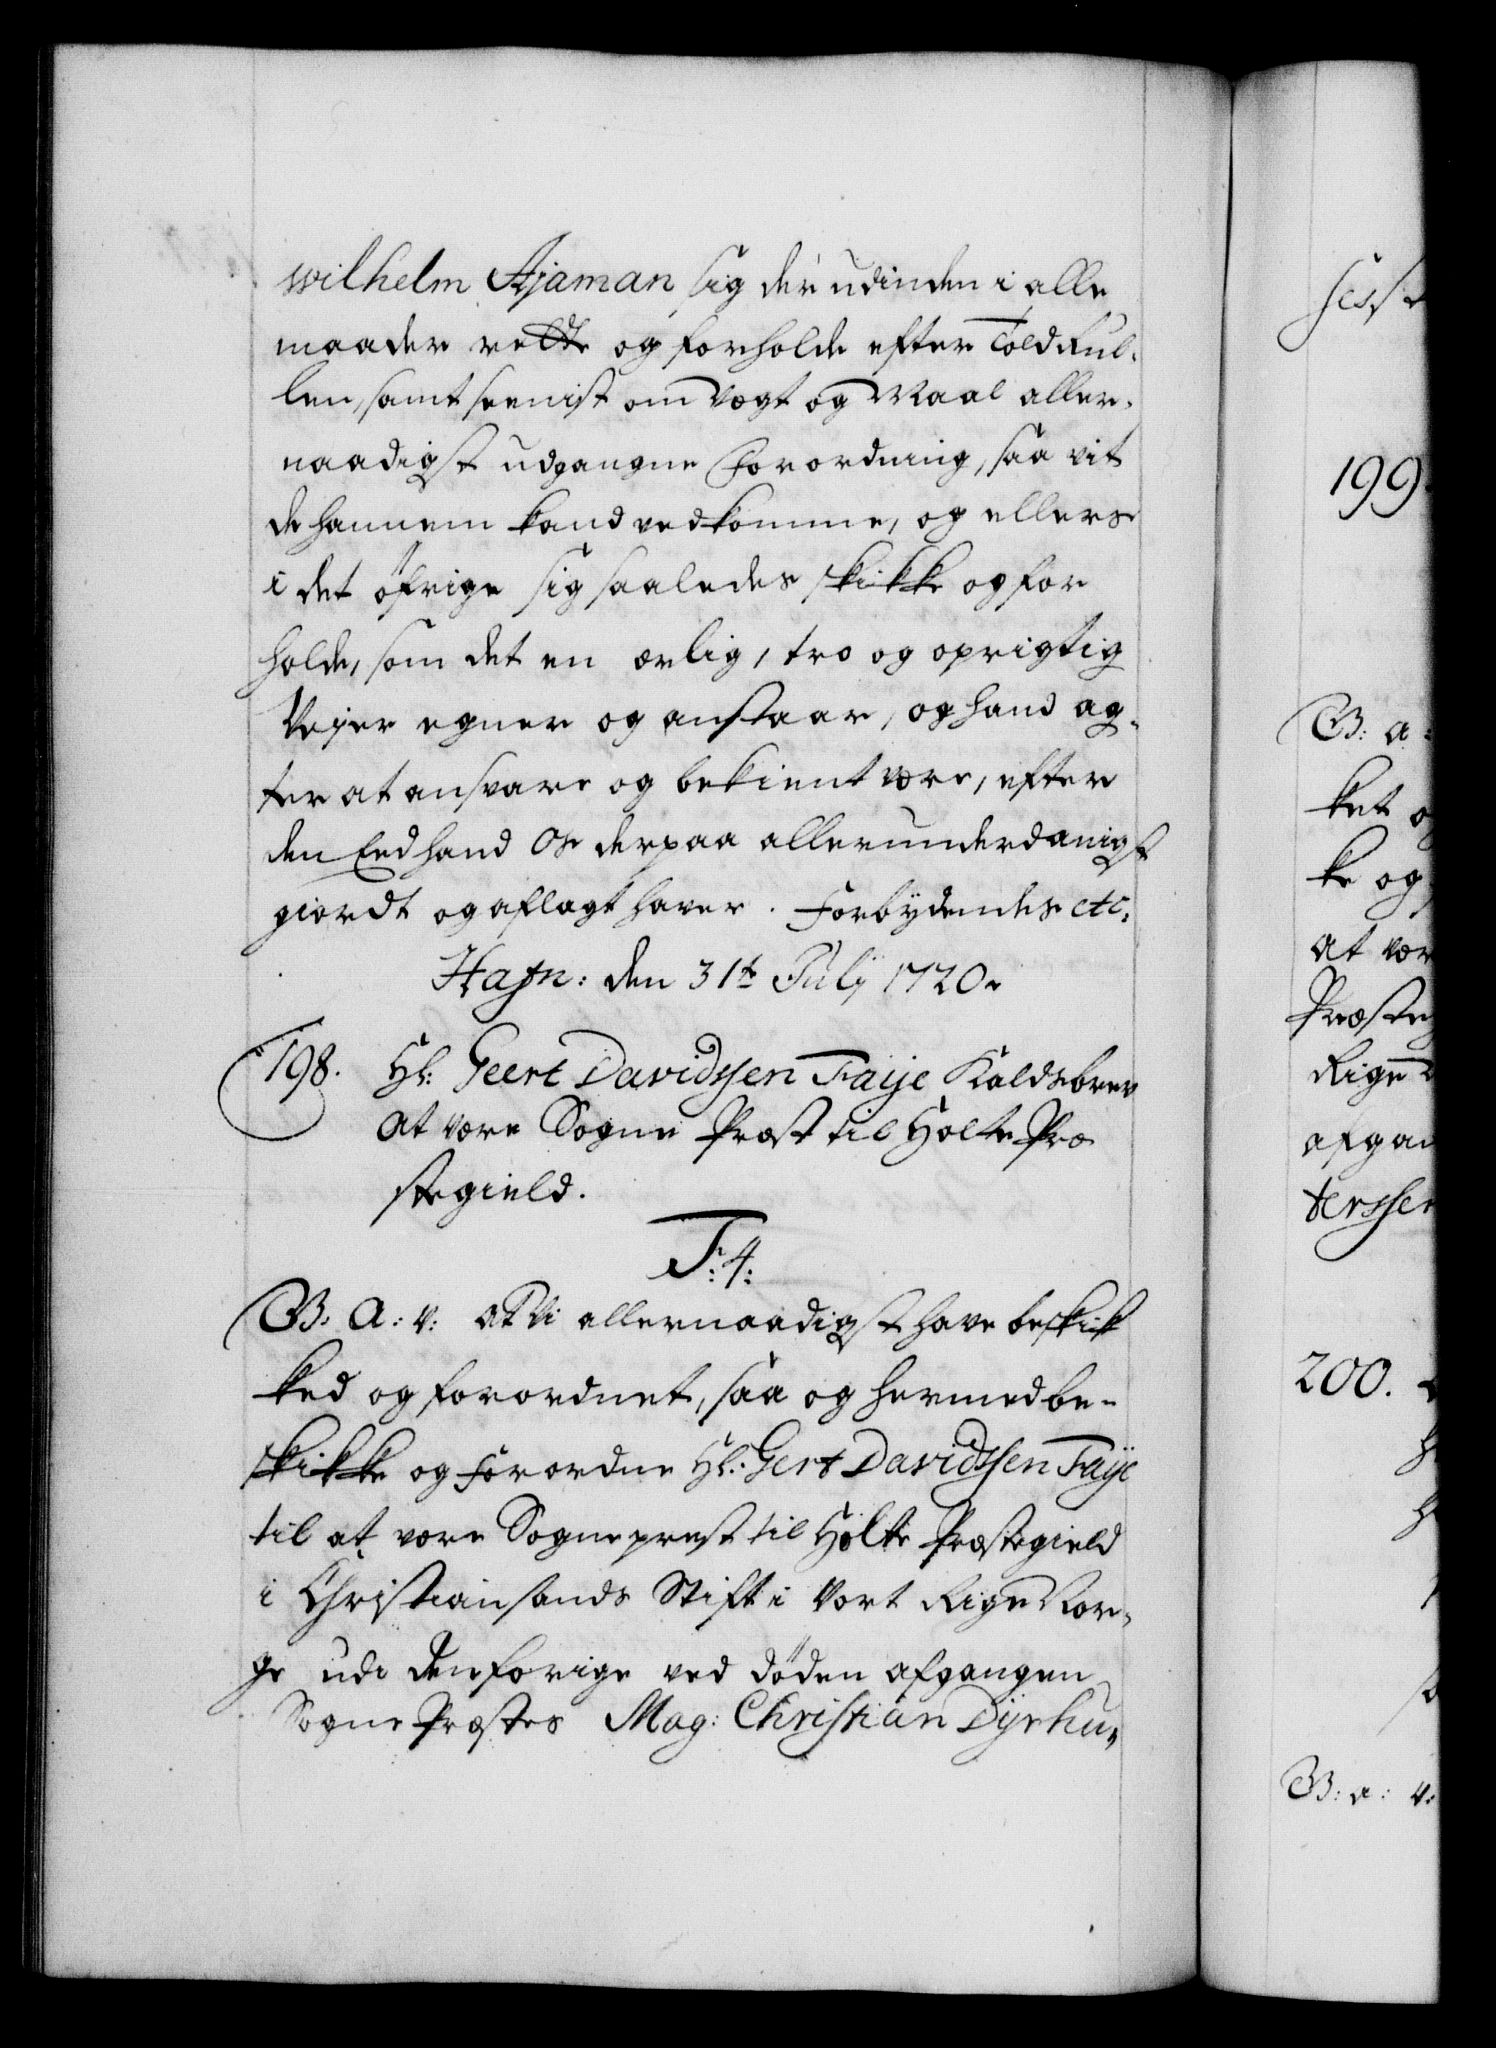 Wilhelm Ajaman sig der udinden i alle
maader rette og forholde efter Told Rul-
len, samt seenist om Vegt og Maal aller-
naadigst udgangne Forordning, saa vit
de hannem kand vedkomme, og ellers
i det öfrige sig saaledes skikke og for
holde, som det en ærlig, tro og oprigtig
Vejer egner og anstaar, og hand ag-
ter at ansvare og bekient være, efter
den Eed hand Os derpaa allerunderdanigst
giordt og aflagt haver. Forbydendes etc:
Hafn: den 31te Julij 1720.
198. Hl: Geert Davidssen Faije Kaldsbrev
at være Sogne Præst til Holte Præ
stegield.
F: 4:
G. A: V: at Vi allernaadigst have beskik
ked og forordnet, saa og hermed be-
skikke og forordne Hl: Gert Davidssen Faije
til at være Sogneprest til Holte Præstegield
i Christiansands Stift i Vort Rige Nor-
ge udi den forige ved döden afgangen
Sogne Præstes Mag: Christian Dyrhu-
sess
199.
G: A:
ket og
ke og
at vær
Præsteg
Rige
afgan
terssen
200.
G: a: v: